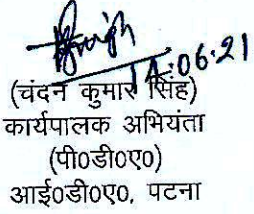 14.06.21
(चंदन कुमार सिंह)
कार्यपालक अभियंता
(पी०डी०ए०)
आई०डी०ए०, पटना